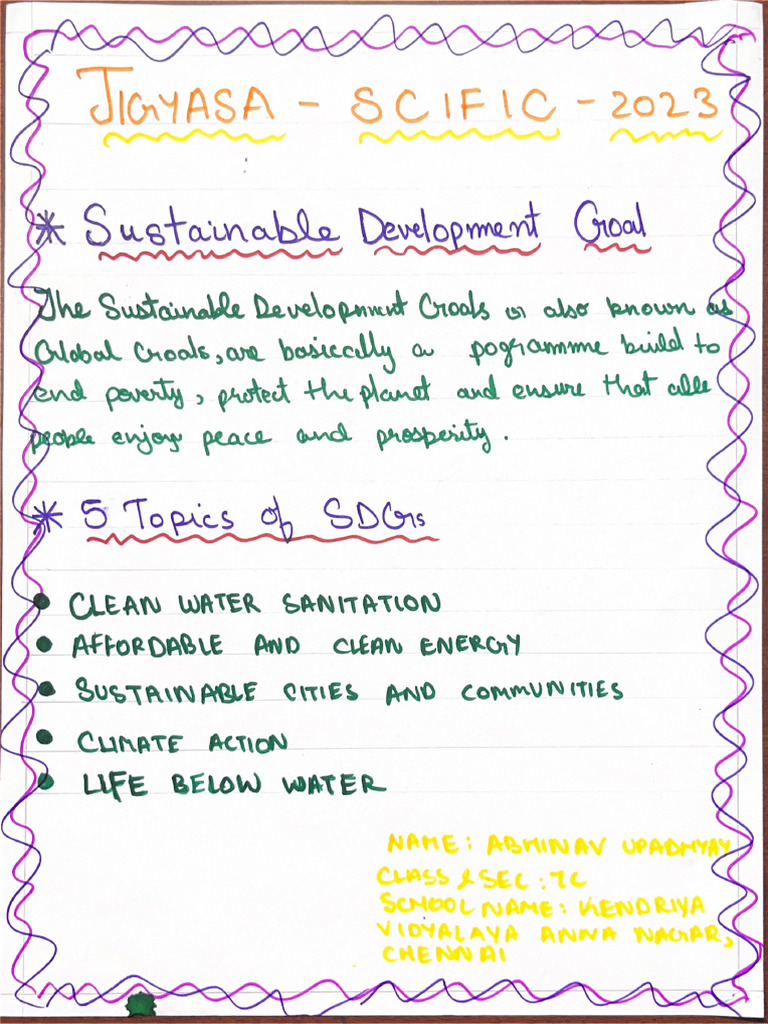 JIGYASA - SCIFIC - 2023
* Sustainable Development Goal
The Sustainable Development Goals or also known as
Global Goals, are basiccally a pogramme build to
end poverty, protect the planet and ensure that all
people enjoy peace and prosperity.
* 5 Topics of SDGs
• CLEAN WATER SANITATION
• AFFORDABLE AND CLEAN ENERGY
• SUSTAINABLE CITIES AND COMMUNITIES
• CLIMATE ACTION
• LIFE BELOW WATER
NAME: ABHINAV UPADHYAY
CLASS & SEC: 7C
SCHOOL NAME: KENDRIYA
VIDYALAYA ANNA NAGAR,
CHENNAI